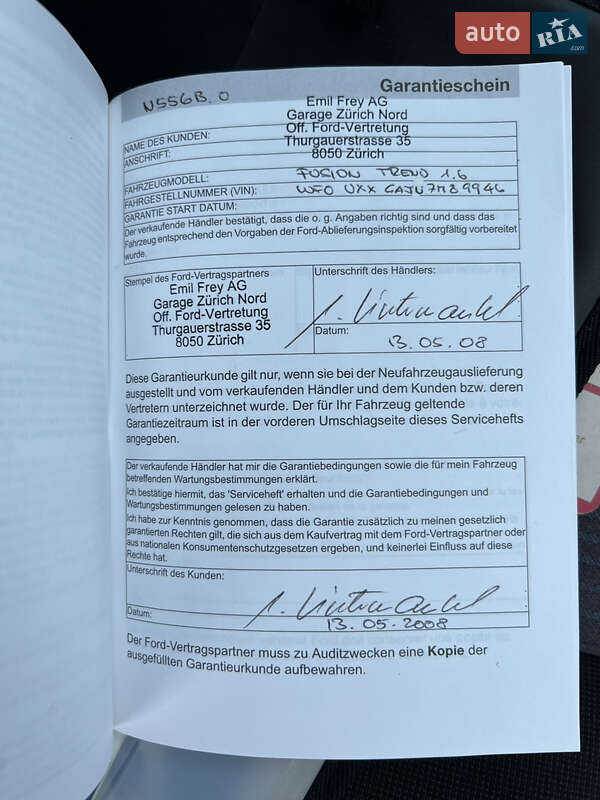 auto RIA .com
Garantieschein
N556B.0
Emil Frey AG
Garage Zürich Nord
Off. Ford-Vertretung
Thurgauerstrasse 35
8050 Zürich
NAME DES KUNDEN:
ANSCHRIFT:
FAHRZEUGMODELL: FUSION TREND 1.6
FAHRGESTELLNUMMER (VIN): WFO UXX GAJU7M89946
GARANTIE START DATUM:
Der verkaufende Händler bestätigt, dass die o. g. Angaben richtig sind und dass das
Fahrzeug entsprechend den Vorgaben der Ford-Ablieferungsinspektion sorgfältig vorbereitet
wurde.
Stempel des Ford-Vertragspartners
Emil Frey AG
Garage Zürich Nord
Off. Ford-Vertretung
Thurgauerstrasse 35
8050 Zürich
Unterschrift des Händlers:
Datum:
13.05.08
Diese Garantieurkunde gilt nur, wenn sie bei der Neufahrzeugauslieferung
ausgestellt und vom verkaufenden Händler und dem Kunden bzw. deren
Vertretern unterzeichnet wurde. Der für Ihr Fahrzeug geltende
Garantiezeitraum ist in der vorderen Umschlagseite dieses Servicehefts
angegeben.
Der verkaufende Händler hat mir die Garantiebedingungen sowie die für mein Fahrzeug
betreffenden Wartungsbestimmungen erklärt.
Ich bestätige hiermit, das 'Serviceheft' erhalten und die Garantiebedingungen und
Wartungsbestimmungen gelesen zu haben.
Ich habe zur Kenntnis genommen, dass die Garantie zusätzlich zu meinen gesetzlich
garantierten Rechten gilt, die sich aus dem Kaufvertrag mit dem Ford-Vertragspartner oder
aus nationalen Konsumentenschutzgesetzen ergeben, und keinerlei Einfluss auf diese
Rechte hat.
Unterschrift des Kunden:
Datum:
13.05.2008
Der Ford-Vertragspartner muss zu Auditzwecken eine Kopie der
ausgefüllten Garantieurkunde aufbewahren.